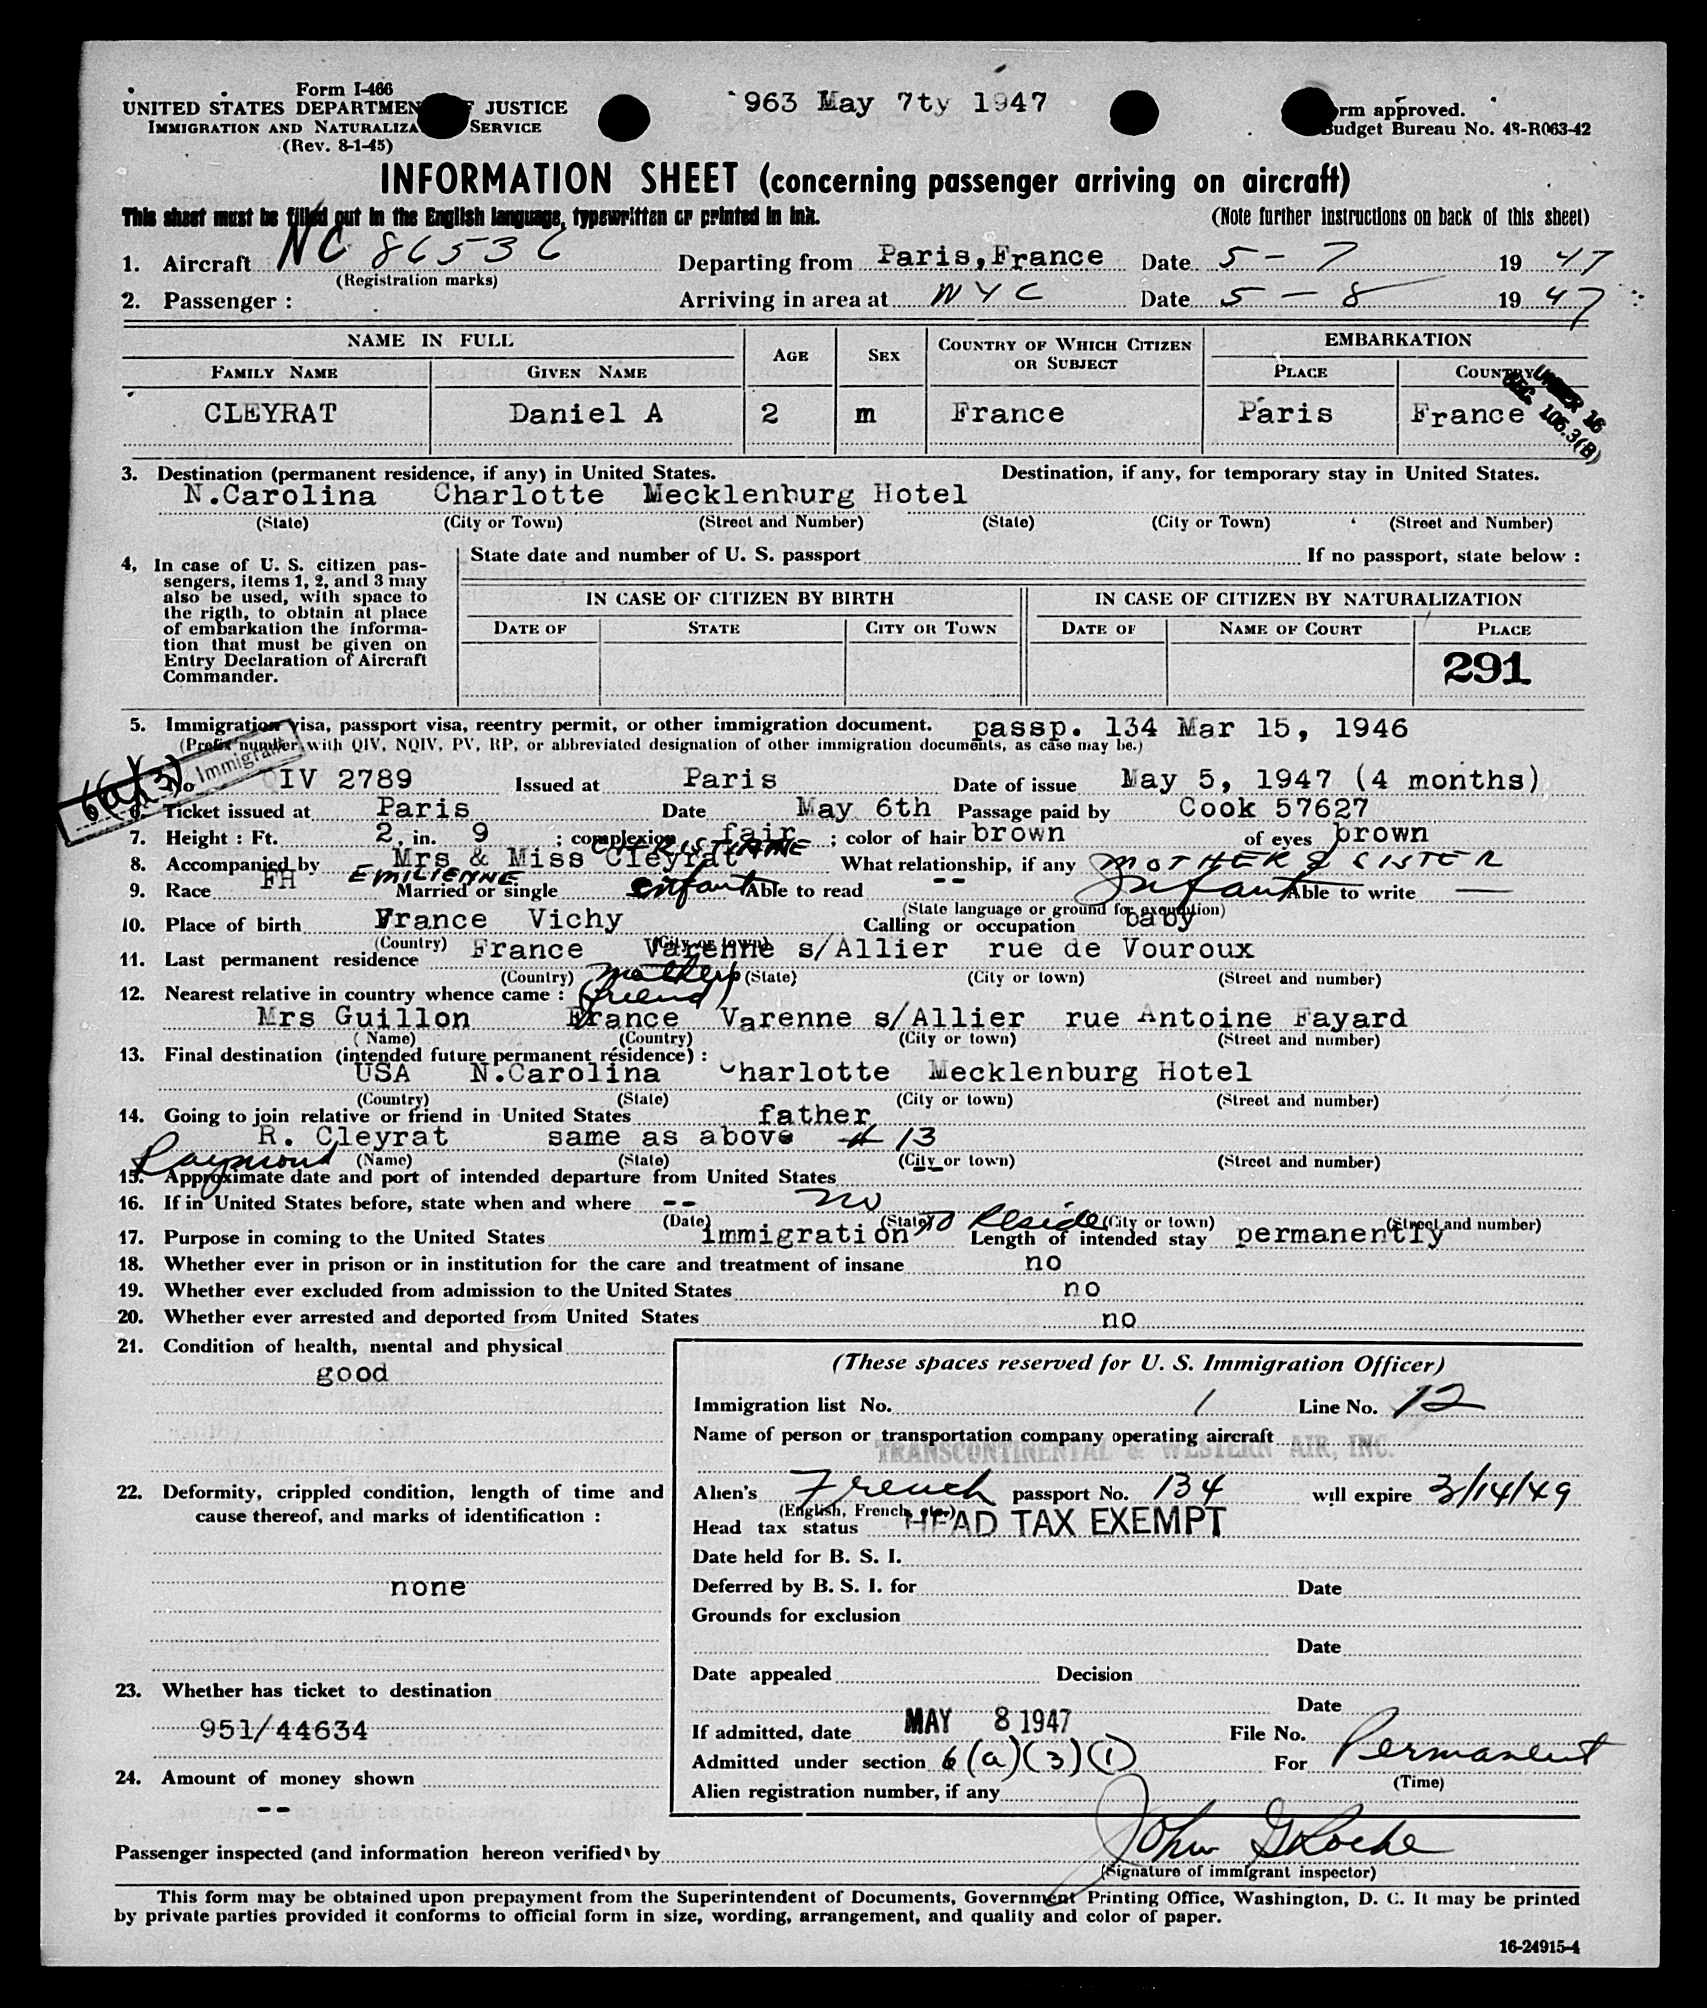 Form I-466
UNITED STATES DEPARTMEN F JUSTICE
IMMIGRATION AND NATURALIZA SERVICE
(Rev. 8-1-45)
963 May 7ty 1947
rm approved.
Budget Bureau No. 43-R063-42
INFORMATION SHEET (concerning passenger arriving on aircraft)
This sheet must be filled out in the English language, typewritten or printed in ink.
(Note further instructions on back of this sheet)
1. Aircraft NC 86536 Departing from Paris, France Date 5 - 7 1947
(Registration marks)
2. Passenger : Arriving in area at NYC Date 5 - 8 1947
NAME IN FULL
AGE
SEX
COUNTRY OF WHICH CITIZEN OR SUBJECT
EMBARKATION
FAMILY NAME
GIVEN NAME
PLACE
COUNTRY
CLEYRAT Daniel A 2 m France Paris France
UNDER 16
SEC. 106.3(B)
3. Destination (permanent residence, if any) in United States. Destination, if any, for temporary stay in United States.
N.Carolina Charlotte Mecklenburg Hotel
(State) (City or Town) (Street and Number) (State) (City or Town) (Street and Number)
4, In case of U. S. citizen pas-
sengers, items 1, 2, and 3 may
also be used, with space to
the rigth, to obtain at place
of embarkation the informa-
tion that must be given on
Entry Declaration of Aircraft
Commander.
State date and number of U. S. passport If no passport, state below :
IN CASE OF CITIZEN BY BIRTH IN CASE OF CITIZEN BY NATURALIZATION
DATE OF STATE CITY OR TOWN DATE OF NAME OF COURT PLACE
291
5. Immigration visa, passport visa, reentry permit, or other immigration document. passp. 134 Mar 15, 1946
(Prefix number with QIV, NQIV, PV, RP, or abbreviated designation of other immigration documents, as case may be.)
Immigrant
6(a)(3)
No QIV 2789 Issued at Paris Date of issue May 5, 1947 (4 months)
6. Ticket issued at Paris Date May 6th Passage paid by Cook 57627
7. Height : Ft. 2, in. 9 ; complexion fair ; color of hair brown of eyes brown
CHRISTIANE
8. Accompanied by Mrs & Miss Cleyrat What relationship, if any MOTHER & SISTER
EMILIENNE
9. Race FH Married or single enfant Able to read -- Infant Able to write —
(State language or ground for exemption)
10. Place of birth France Vichy Calling or occupation baby
(Country) (City or town)
11. Last permanent residence France Varenne s/Allier rue de Vouroux
(Country) (State) (City or town) (Street and number)
mothers
12. Nearest relative in country whence came : (friend)
Mrs Guillon France Varenne s/Allier rue Antoine Fayard
(Name) (Country) (City or town) (Street and number)
13. Final destination (intended future permanent résidence) :
USA N.Carolina Charlotte Mecklenburg Hotel
(Country) (State) (City or town) (Street and number)
14. Going to join relative or friend in United States father
R. Cleyrat same as above # 13
Raymond (Name) (State) (City or town) (Street and number)
15. Approximate date and port of intended departure from United States
16. If in United States before, state when and where -- no
(Date) (State) (City or town) (Street and number)
17. Purpose in coming to the United States immigration To Reside Length of intended stay permanently
18. Whether ever in prison or in institution for the care and treatment of insane no
19. Whether ever excluded from admission to the United States no
20. Whether ever arrested and deported from United States no
21. Condition of health, mental and physical
good
22. Deformity, crippled condition, length of time and
cause thereof, and marks of identification :
none
23. Whether has ticket to destination
951/44634
24. Amount of money shown
--
(These spaces reserved for U. S. Immigration Officer)
Immigration list No. 1 Line No. 12
Name of person or transportation company operating aircraft
TRANSCONTINENTAL & WESTERN AIR, INC.
Alien's French passport No. 134 will expire 3/14/49
(English, French, etc.)
Head tax status HEAD TAX EXEMPT
Date held for B. S. I.
Deferred by B. S. I. for Date
Grounds for exclusion
Date
Date appealed Decision
Date
If admitted, date MAY 8 1947 File No.
Admitted under section 6(a)(3)(1) For Permanent
(Time)
Alien registration number, if any
Passenger inspected (and information hereon verified) by John G Roche
(Signature of immigrant inspector)
This form may be obtained upon prepayment from the Superintendent of Documents, Government Printing Office, Washington, D. C. It may be printed
by private parties provided it conforms to official form in size, wording, arrangement, and quality and color of paper.
16-24915-4